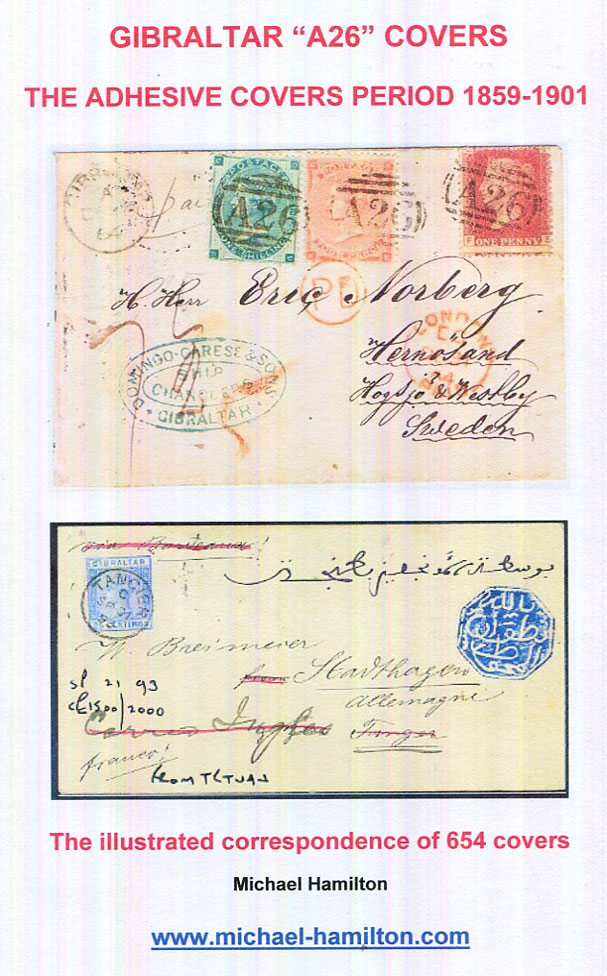 GIBRALTAR “A26” COVERS
THE ADHESIVE COVERS PERIOD 1859-1901
64
POSTAGE
ONE SHILLING
A26
A26
A26
ONE PENNY
H. Herr Eric Norberg.
PD
Hernösand
LONDON
Hogsjö & Westby
Sweden
DOMINGO·CARESE & SONS
SHIP
CHANDLERS
·GIBRALTAR·
via Bordeaux!
GIBRALTAR
TANGIER
CENTIMOS
W. Breimeier
from Stadthagen
allemagne
Sp 21 93
1500/2000
Correo Ingles Tanger
franco!
from TETUAN
The illustrated correspondence of 654 covers
Michael Hamilton
www.michael-hamilton.com